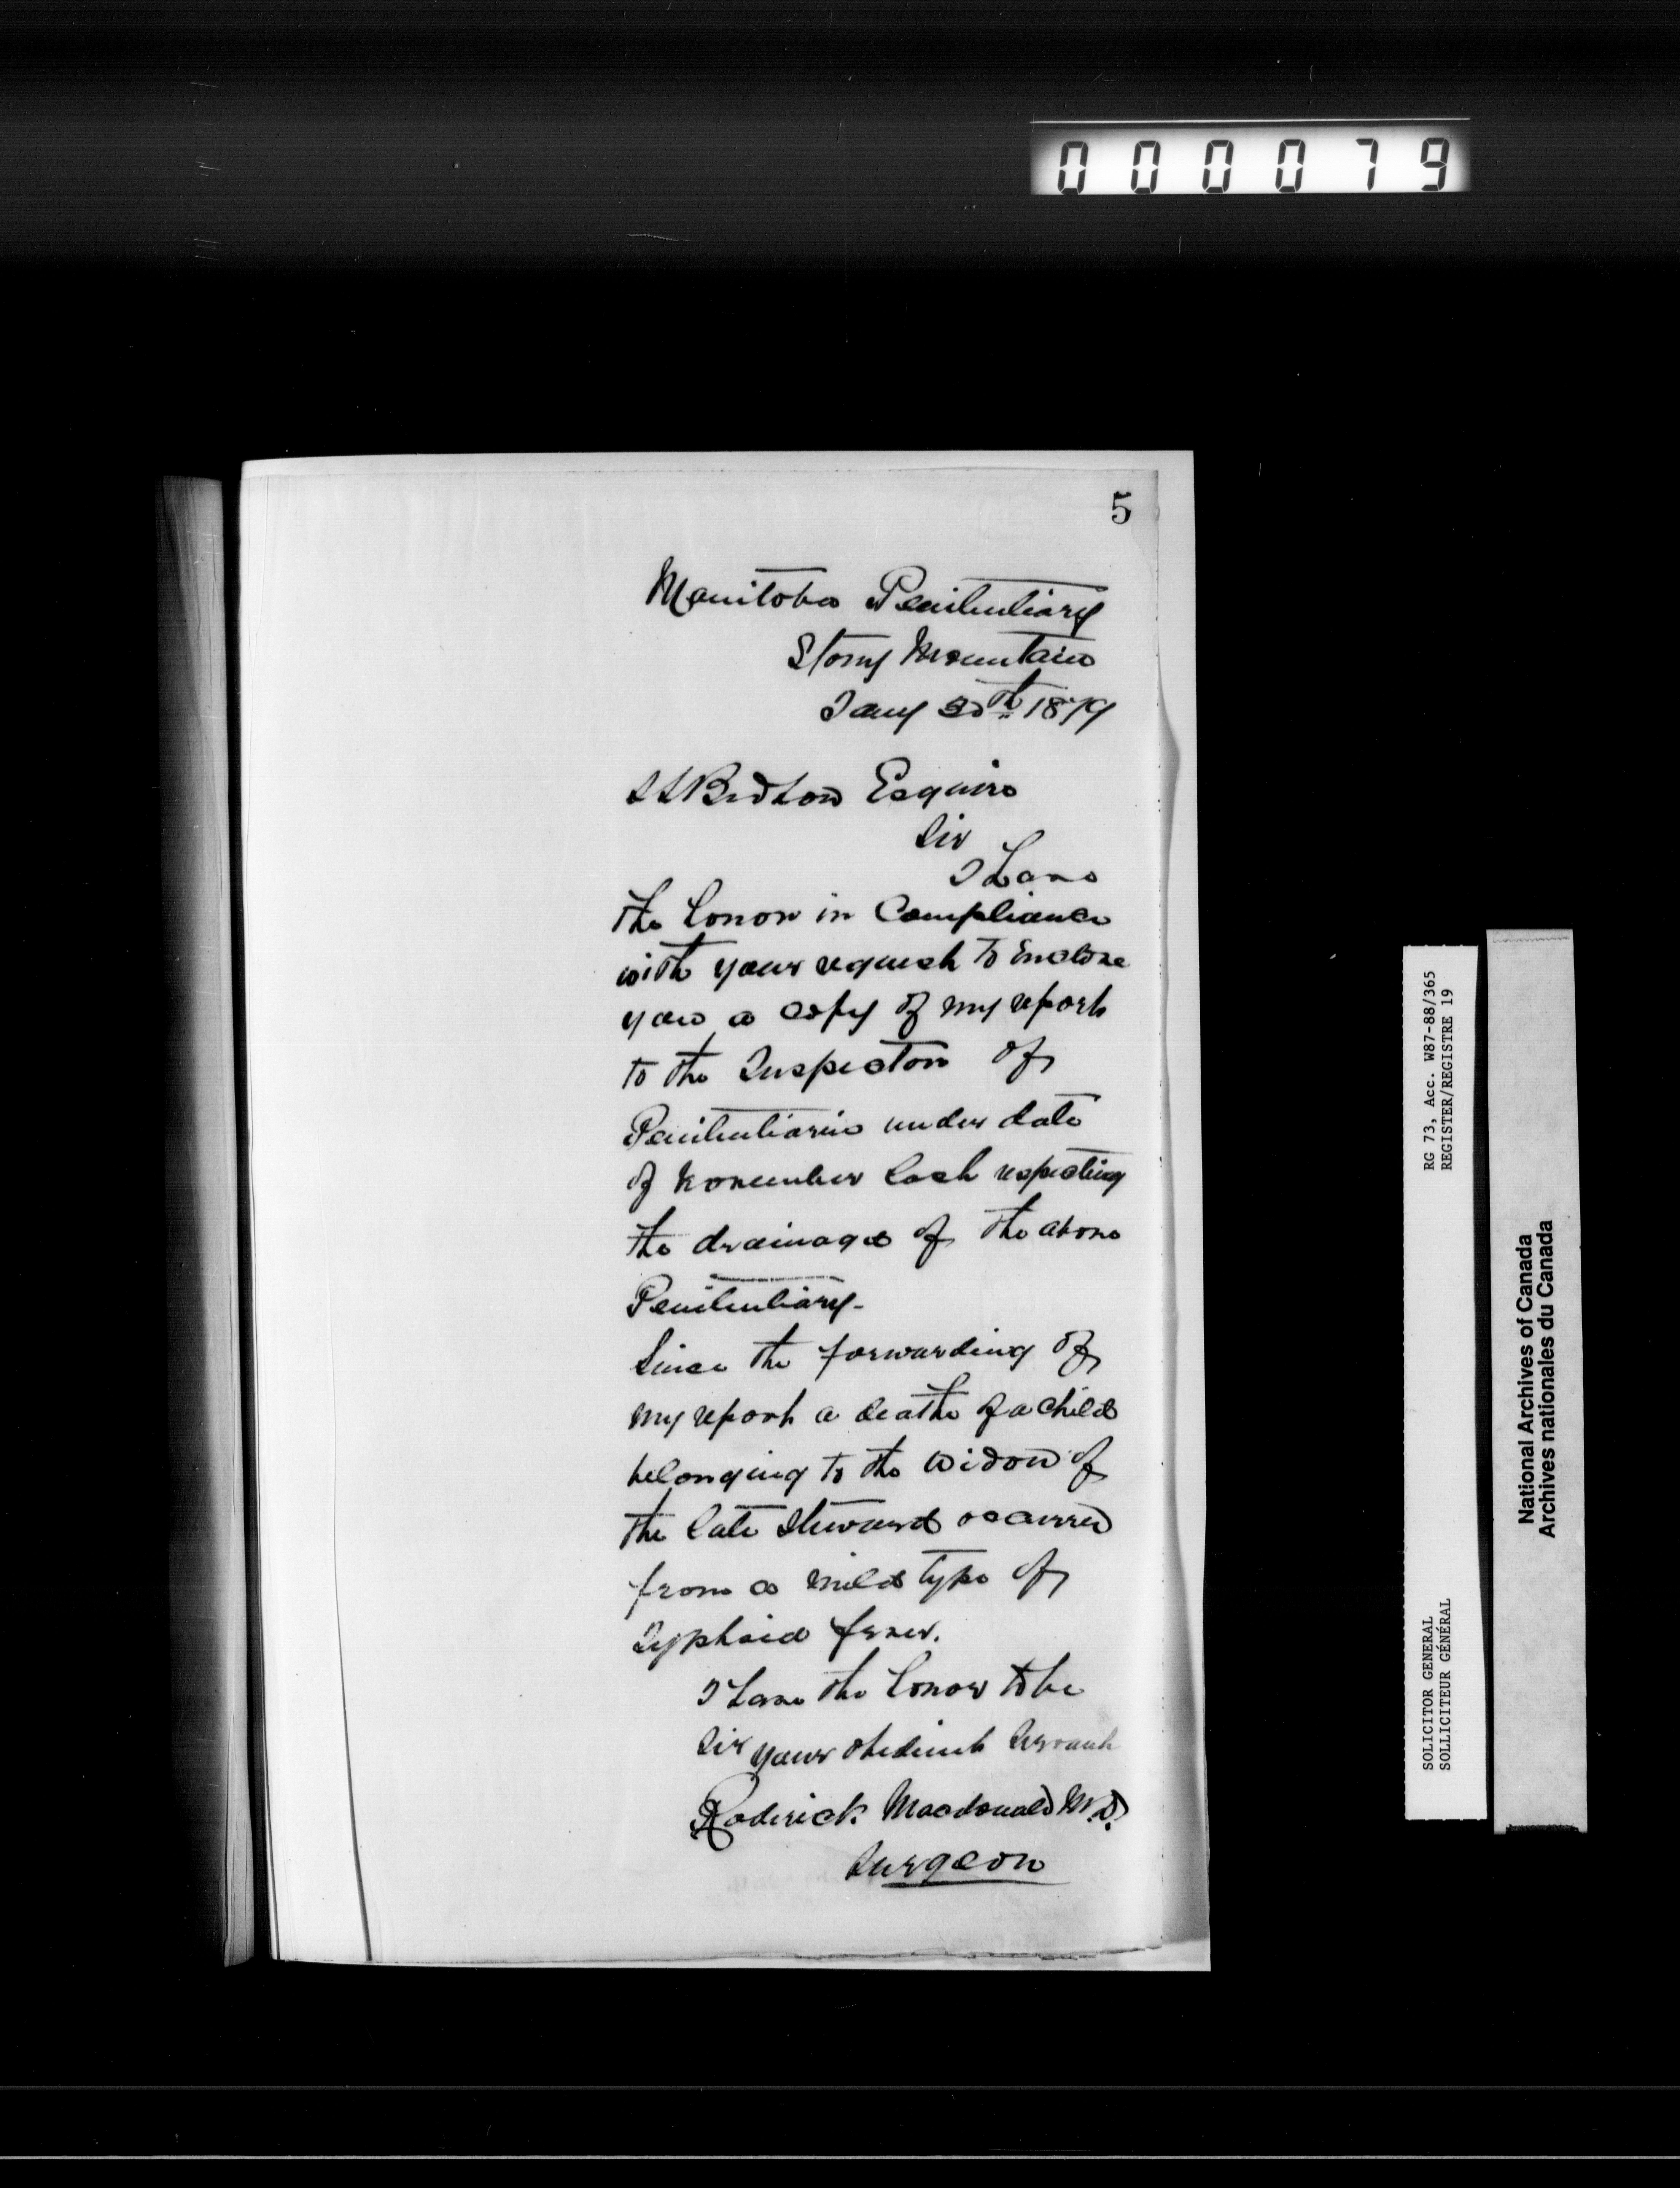 000079
5
Manitoba Penitentiary
Stony Mountain
Jany 30th 1879
S L Bedson Esquire
Sir
I have
the honor in Compliance
with your request to Enclose
you a copy of my report
to the Inspector of
Penitentiaries under date
of November last respecting
the drainage of the above
Penitentiary-
Since the forwarding of
my report a death of a child
belonging to the widow of
the late Steward occurred
from a mild type of
Typhoid fever.
I have the honor to be
Sir your obedient Servant
Roderick Macdonald M.D.
Surgeon
RG 73, Acc. W87-88/365
REGISTER/REGISTRE 19
SOLICITOR GENERAL
SOLLICITEUR GÉNÉRAL
National Archives of Canada
Archives nationales du Canada